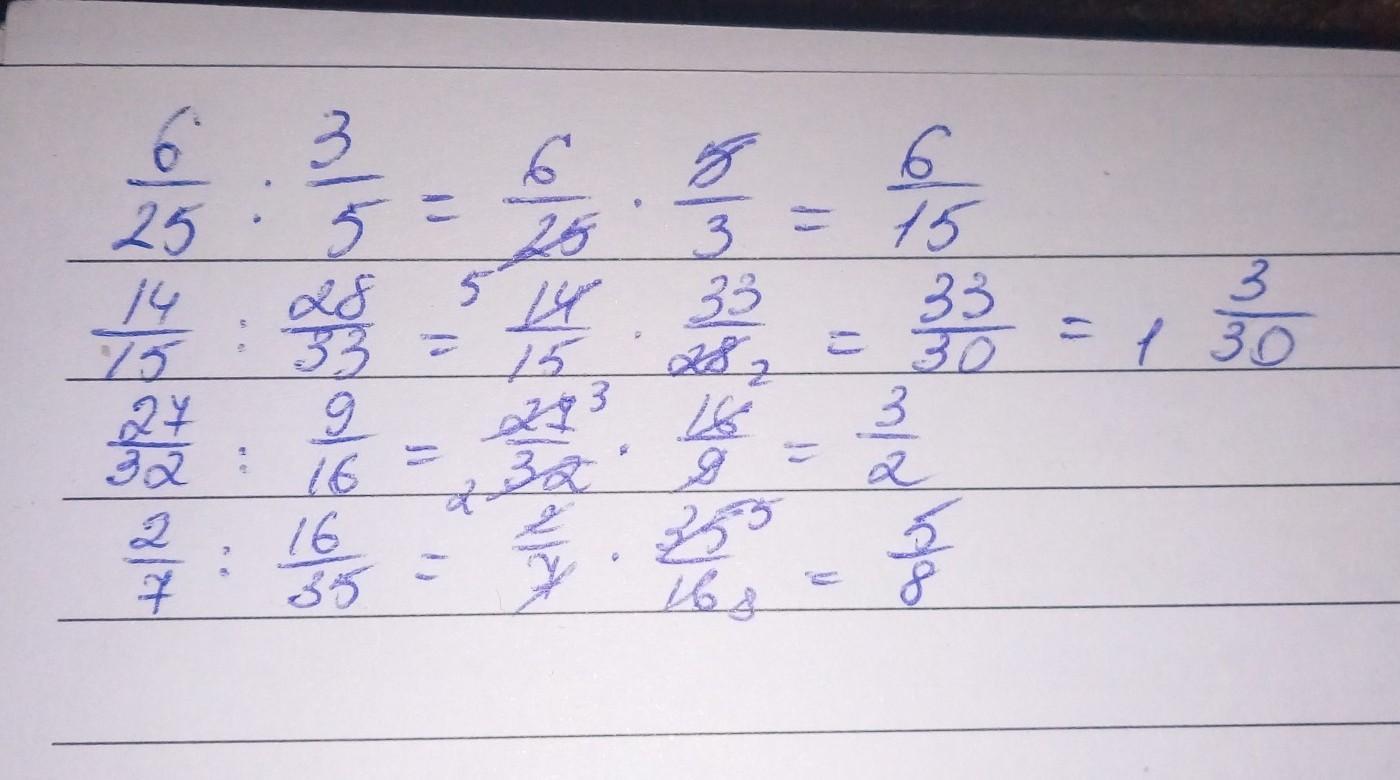 6/25 : 3/5 = 6/25 5 · 5/3 = 6/15
14/15 : 28/33 = 14/15 · 33/28 2 = 33/30 = 1 3/30
27/32 : 9/16 = 27 3/32 2 · 16/9 = 3/2
2/7 : 16/35 = 2/7 · 35 5/16 8 = 5/8